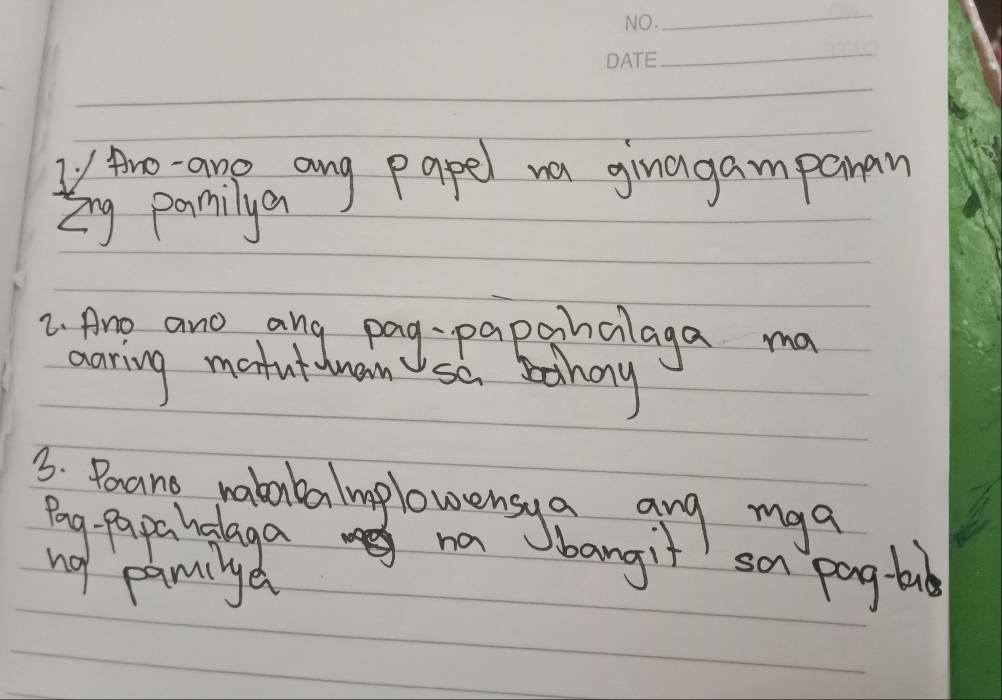 NO.
DATE
1. Ano-ano ang papel na ginagampanan
ng pamilya
2. Ano ano ang pag-papahalaga ma
aaring matutunan sa bahay
3. Paano nabobaImplowensya ang mga
Pag-papahalaga na bangit sa pag-bub
ng pamilya